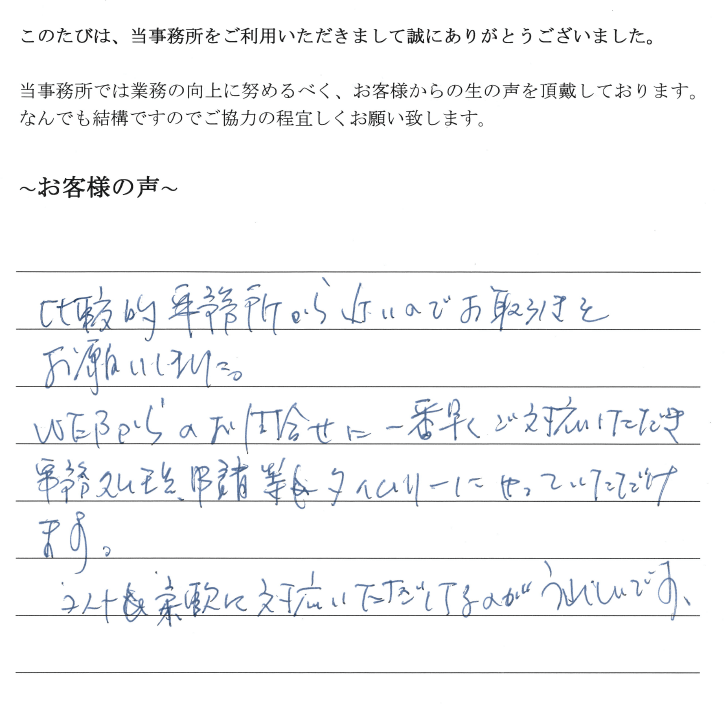 このたびは、当事務所をご利用いただきまして誠にありがとうございました。
当事務所では業務の向上に努めるべく、お客様からの生の声を頂戴しております。
なんでも結構ですのでご協力の程宜しくお願い致します。
~お客様の声~
比較的事務所から近いのでお取引きを
お願いしました。
WEBからのお問合せに一番早くご対応いただき
事務処理、申請業務もタイムリーにやっていただけ
ます。
コストも柔軟に対応いただけてるのがうれしいです、